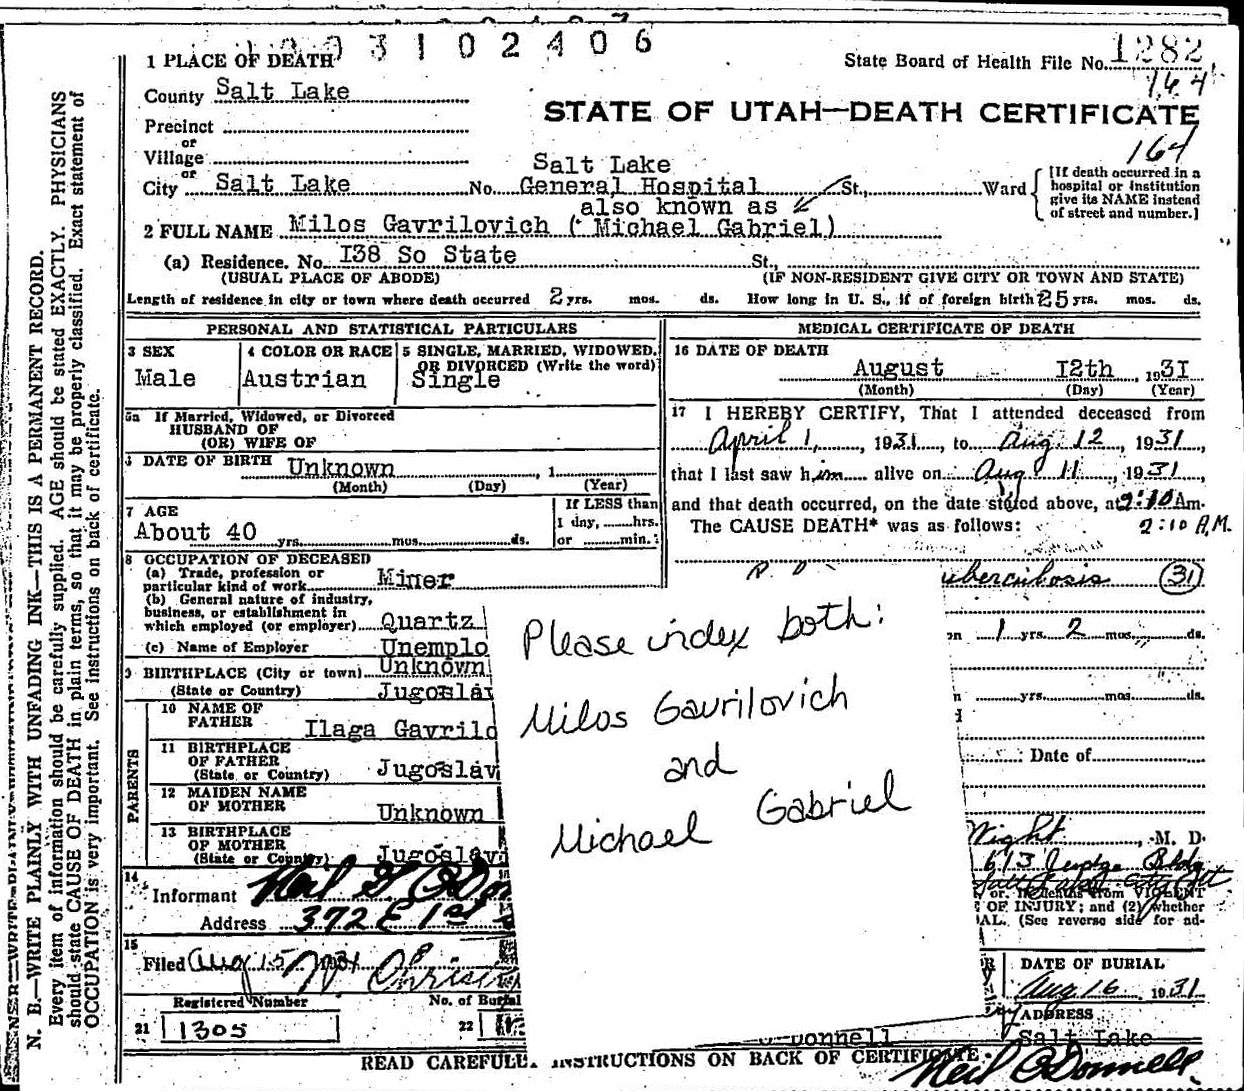 3 1 0 2 4 0 6
1 PLACE OF DEATH
State Board of Health File No. 1282
164
County Salt Lake
STATE OF UTAH—DEATH CERTIFICATE
Precinct
or
Village
164
or
City Salt Lake No. Salt Lake General Hospital St., Ward
[If death occurred in a hospital or institution give its NAME instead of street and number.]
also known as
2 FULL NAME Milos Gavrilovich ( Michael Gabriel)
(a) Residence. No. I38 So State St.,
(USUAL PLACE OF ABODE) (IF NON-RESIDENT GIVE CITY OR TOWN AND STATE)
Length of residence in city or town where death occurred 2 yrs. mos. ds. How long in U. S., if of foreign birth 25 yrs. mos. ds.
PERSONAL AND STATISTICAL PARTICULARS
3 SEX
Male
4 COLOR OR RACE
Austrian
5 SINGLE, MARRIED, WIDOWED, OR DIVORCED (Write the word)
Single
5a If Married, Widowed, or Divorced
HUSBAND OF
(OR) WIFE OF
DATE OF BIRTH Unknown , 1
(Month) (Day) (Year)
7 AGE
About 40 yrs. mos. ds.
If LESS than
1 day, hrs.
or min.
8 OCCUPATION OF DECEASED
(a) Trade, profession or particular kind of work Miner
(b) General nature of industry, business, or establishment in which employed (or employer) Quartz
(c) Name of Employer Unemplo
9 BIRTHPLACE (City or town) Unknown
(State or Country) Jugoslav
PARENTS
10 NAME OF FATHER Ilaga Gavrilo
11 BIRTHPLACE OF FATHER (State or Country) Jugoslav
12 MAIDEN NAME OF MOTHER Unknown
13 BIRTHPLACE OF MOTHER (State or Country) Jugoslav
14
Informant Neil O'Don
Address 372 E 1st
15
Filed Aug 15 1931
Registered Number No. of Burial
21 1305 22
MEDICAL CERTIFICATE OF DEATH
16 DATE OF DEATH
August I2th , 193I
(Month) (Day) (Year)
17 I HEREBY CERTIFY, That I attended deceased from
April 1, 1931, to Aug. 12, 1931,
that I last saw him alive on Aug 11, 1931
and that death occurred, on the date stated above, at 2:10 Am.
The CAUSE DEATH* was as follows: 2:10 A.M.
uberculosis (31)
1 yrs. 2 mos. ds.
yrs. mos. ds.
Date of
Please index both:
Milos Gavrilovich
and
Michael Gabriel
Wight , M. D.
613 Judge Bldg
or, in deaths from VIOLENT
OF INJURY; and (2) whether
AL. (See reverse side for ad-
DATE OF BURIAL
Aug 16 1931
ADDRESS
Donnell Salt Lake
READ CAREFULL INSTRUCTIONS ON BACK OF CERTIFICATE.
Neil O'Donnell
N. B.—WRITE PLAINLY WITH UNFADING INK—THIS IS A PERMANENT RECORD.
Every item of information should be carefully supplied. AGE should be stated EXACTLY. PHYSICIANS
should state CAUSE OF DEATH in plain terms, so that it may be properly classified. Exact statement of
OCCUPATION is very important. See instructions on back of certificate.